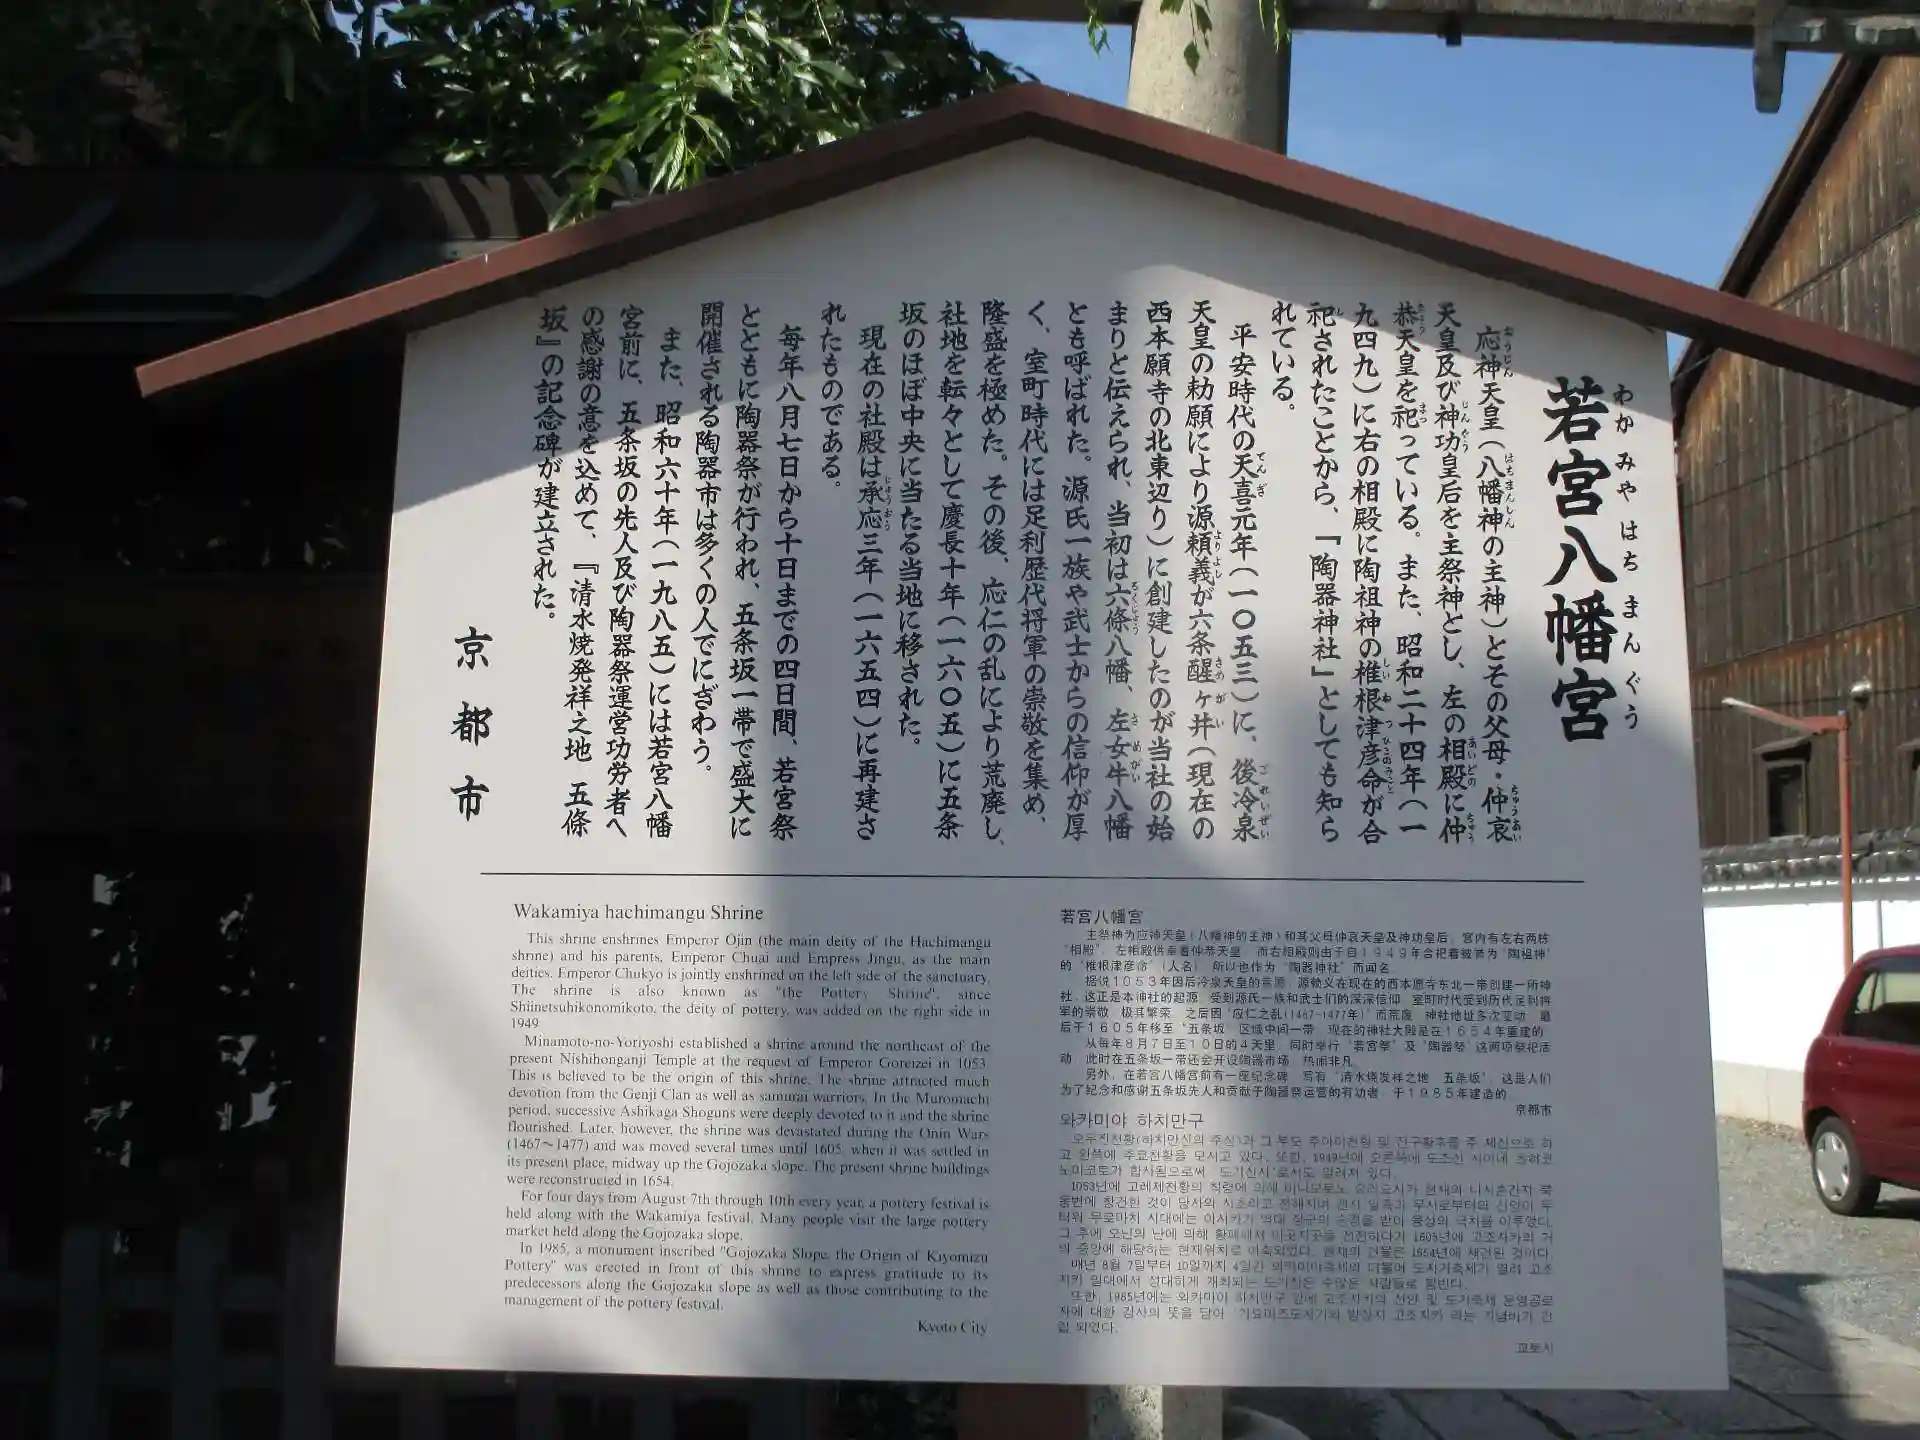 若宮八幡宮
わかみやはちまんぐう
応神天皇(八幡神の主神)とその父母・仲哀
天皇及び神功皇后を主祭神とし、左の相殿に仲
恭天皇を祀っている。また、昭和二十四年(一
九四九)に右の相殿に陶祖神の椎根津彦命が合
祀されたことから、「陶器神社」としても知ら
れている。
平安時代の天喜元年(一〇五三)に、後冷泉
天皇の勅願により源頼義が六条醒ヶ井(現在の
西本願寺の北東辺り)に創建したのが当社の始
まりと伝えられ、当初は六條八幡、左女牛八幡
とも呼ばれた。源氏一族や武士からの信仰が厚
く、室町時代には足利歴代将軍の崇敬を集め、
隆盛を極めた。その後、応仁の乱により荒廃し、
社地を転々として慶長十年(一六〇五)に五条
坂のほぼ中央に当たる当地に移された。
現在の社殿は承応三年(一六五四)に再建さ
れたものである。
毎年八月七日から十日までの四日間、若宮祭
とともに陶器祭が行われ、五条坂一帯で盛大に
開催される陶器市は多くの人でにぎわう。
また、昭和六十年(一九八五)には若宮八幡
宮前に、五条坂の先人及び陶器祭運営功労者へ
の感謝の意を込めて、『清水焼発祥之地 五條
坂』の記念碑が建立された。
京都市
Wakamiya hachimangu Shrine
This shrine enshrines Emperor Ojin (the main deity of the Hachimangu
shrine) and his parents, Emperor Chuai and Empress Jingu, as the main
deities. Emperor Chukyo is jointly enshrined on the left side of the sanctuary.
The shrine is also known as "the Pottery Shrine", since
Shiinetsuhikonomikoto, the deity of pottery, was added on the right side in
1949.
Minamoto-no-Yoriyoshi established a shrine around the northeast of the
present Nishihonganji Temple at the request of Emperor Goreizei in 1053.
This is believed to be the origin of this shrine. The shrine attracted much
devotion from the Genji Clan as well as samurai warriors. In the Muromachi
period, successive Ashikaga Shoguns were deeply devoted to it and the shrine
flourished. Later, however, the shrine was devastated during the Onin Wars
(1467〜1477) and was moved several times until 1605, when it was settled in
its present place, midway up the Gojozaka slope. The present shrine buildings
were reconstructed in 1654.
For four days from August 7th through 10th every year, a pottery festival is
held along with the Wakamiya festival. Many people visit the large pottery
market held along the Gojozaka slope.
In 1985, a monument inscribed "Gojozaka Slope, the Origin of Kiyomizu
Pottery" was erected in front of this shrine to express gratitude to its
predecessors along the Gojozaka slope as well as those contributing to the
management of the pottery festival.
Kyoto City
若宫八幡宫
主祭神为应神天皇(八幡神的主神)和其父母仲哀天皇及神功皇后,宫内有左右两栋
"相殿",左相殿供奉着仲恭天皇,而右相殿则由于自1949年合祀着被誉为"陶祖神"
的"椎根津彦命"(人名),所以也作为"陶器神社"而闻名。
据说1053年因后冷泉天皇的意愿,源赖义在现在的西本愿寺东北一带创建一所神
社,这正是本神社的起源。受到源氏一族和武士们的深深信仰,室町时代受到历代足利将
军的崇敬,极其繁荣。之后因"应仁之乱(1467-1477年)"而荒废,神社地址多次变动,最
后于1605年移至"五条坂"区域中间一带。现在的神社大殿是在1654年重建的。
从每年8月7日至10日的4天里,同时举行"若宫祭"及"陶器祭"这两项祭祀活
动,此时在五条坂一带还会开设陶器市场,热闹非凡。
另外,在若宫八幡宫前有一座纪念碑,写有"清水烧发祥之地 五条坂",这是人们
为了纪念和感谢五条坂先人和贡献于陶器祭运营的有功者,于1985年建造的。
京都市
와카미야 하치만구
고 왼쪽에 주쿄천황을 모시고 있다. 또한, 1949년에 오른쪽에 도조신
매년 8월 7일부터 10일까지 4일간
교토시